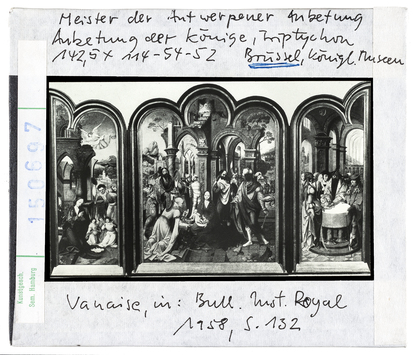 Meister der Antwerpener Anbetung
Anbetung der Könige, Triptychon
142,5 x 114-54-52 Brüssel, Königl. Museen
150697
Kunstgesch.
Sem. Hamburg
Vanaise, in: Bull. Inst. Royal
1958, S. 132